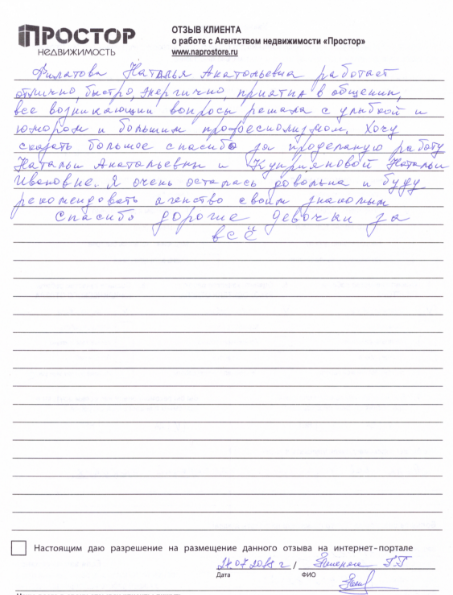 ПРОСТОР
НЕДВИЖИМОСТЬ
ОТЗЫВ КЛИЕНТА
о работе с Агентством недвижимости «Простор»
www.naprostore.ru
Филатова Наталья Анатольевна работает
отлично, быстро, энергично, приятна в общении,
все возникающие вопросы решала с улыбкой и
юмором и большим профессионализмом. Хочу
сказать большое спасибо за проделаную работу
Натальи Анатольевны и Куприяновой Натальи
Ивановне. Я очень осталась довольна и буду
рекомендовать агенство своим знакомым
Спасибо дорогие девочки за
всё
Настоящим даю разрешение на размещение данного отзыва на интернет-портале
Дата
ФИО